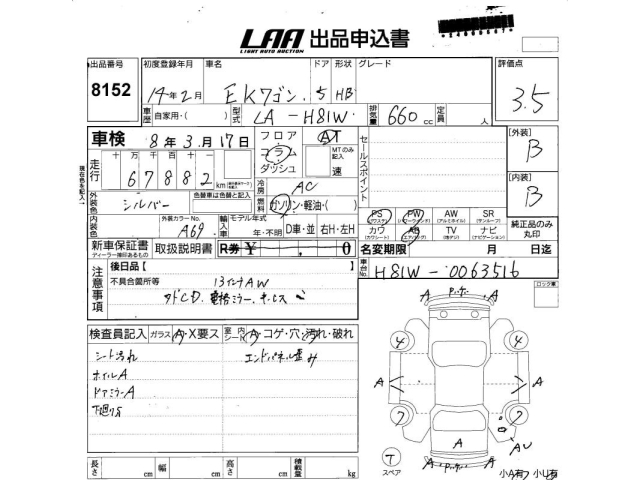 LAA 出品申込書
LIGHT AUTO AUCTION
出品番号 初度登録年月 車名 ドア 形状 グレード 評価点
8152 14年2月 EKワゴン 5 HB 3.5
車歴 自家用・( ) 型式 LA-H81W 排気量 660 cc 定員 人
車検 8年3月17日 フロア コラム ダッシュ AT MTのみ記入 速 セールスポイント 【外装】 B
走行 十万千百十 67882 km
現在色を記入
外装色 シルバー 色替車は色替と記入 冷房 AC 【内装】 B
燃料 ガソリン・軽油・( )
内装色 外装カラーNo. A69 輸入車 モデル年式 年 D車・並 右H・左H
PS PW AW SR
カワ AB TV ナビ 純正品のみ丸印
新車保証書 取扱説明書 R券 ¥ 0 名変期限 月 日迄
ディーラー捺印あるもの
注意事項 後日品【 】 車台No. H81W-0063516
不具合箇所等 13インチAW ロック車
検査員記入 ガラス A・X要ス 室内シート A・コゲ・穴・汚れ・破れ
シート汚れ エンドパネル歪み
ホイルA
ドアミラーA
4 4
A A
7 7
A
AU
T
スペア
長さ cm 幅 cm 高さ cm 積載量 kg